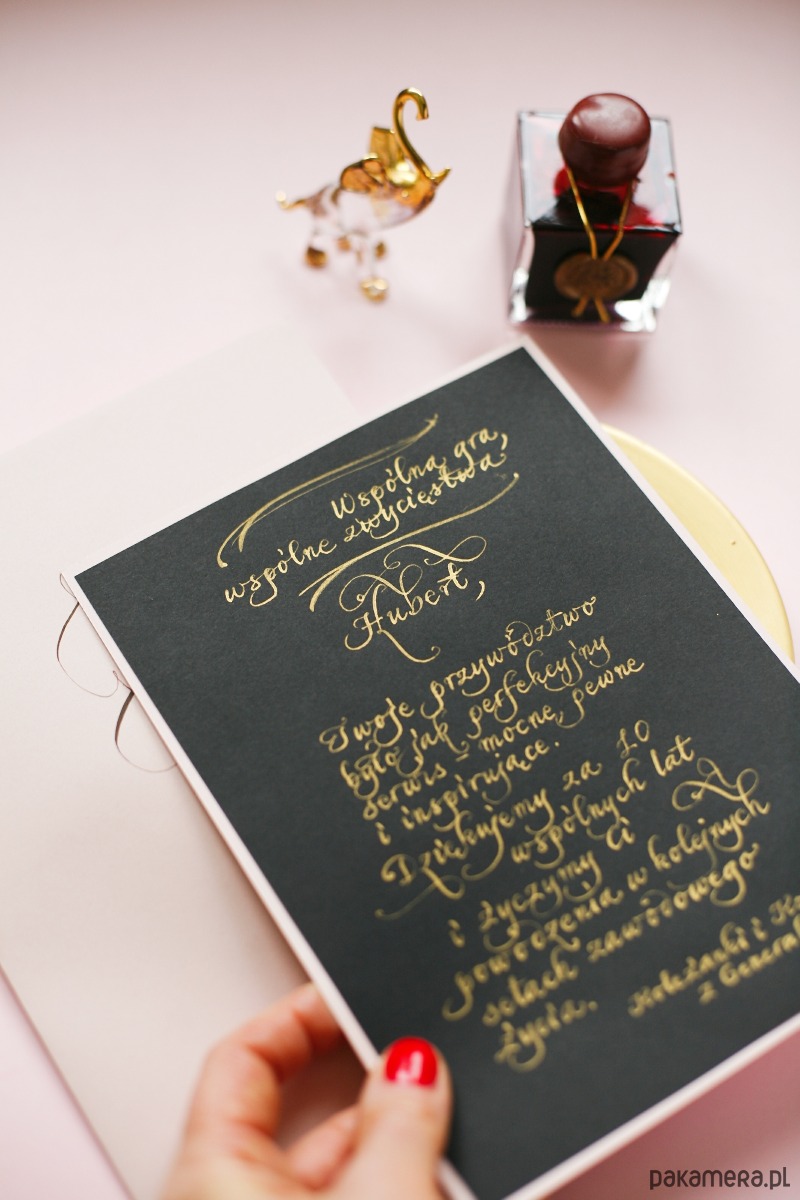 Wspólna gra,
wspólne zwycięstwa
Hubert,
Twoje przywództwo
było jak perfekcyjny
serwis – mocne, pewne
i inspirujące.
Dziękujemy za 10
wspólnych lat
i życzymy Ci
powodzenia w kolejnych
setach zawodowego
życia.
Koleżanki i Ko
z General
pakamera.pl